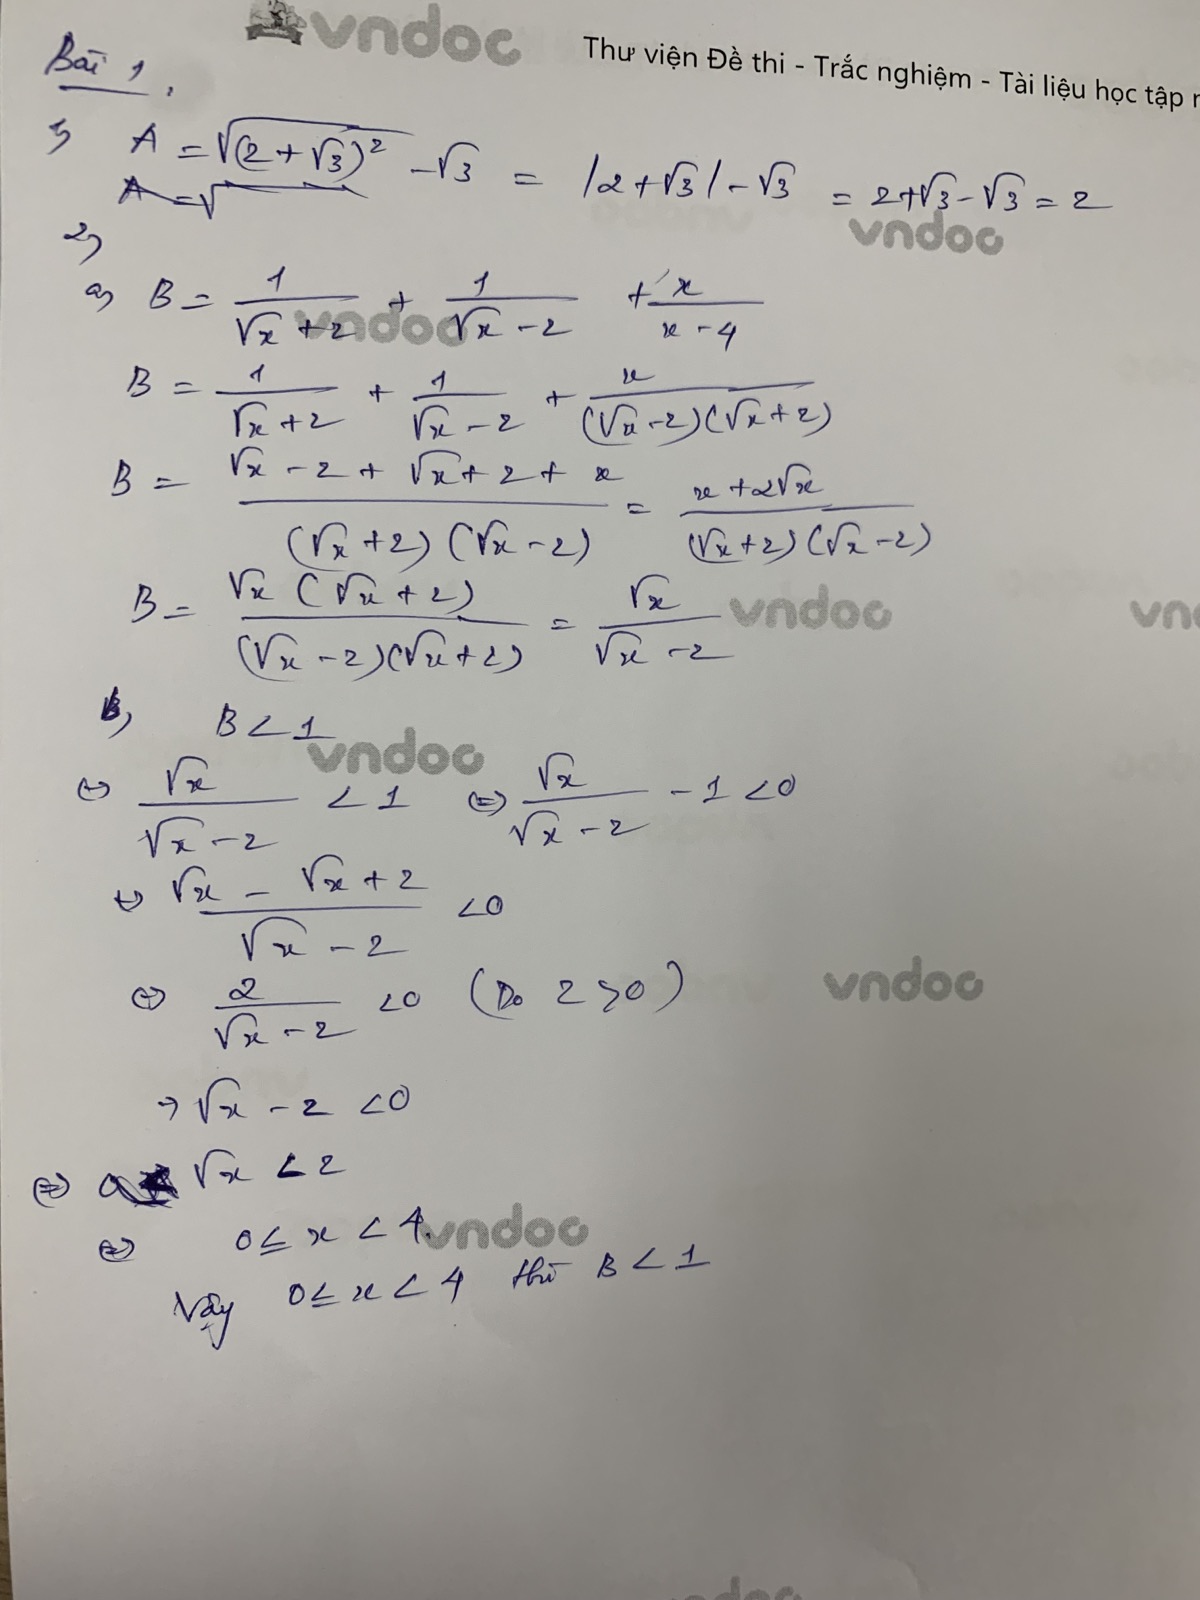 vndoc
Thư viện Đề thi - Trắc nghiệm - Tài liệu học tập
Bài 1,
1) A = √(2 + √3)² - √3 = |2 + √3| - √3 = 2 + √3 - √3 = 2
A = √
vndoc
2)
a) B = 1/(√x + 2) + 1/(√x - 2) + x/(x - 4)
vndoc
B = 1/(√x + 2) + 1/(√x - 2) + x/((√x - 2)(√x + 2))
B = (√x - 2 + √x + 2 + x)/((√x + 2)(√x - 2)) = (x + 2√x)/((√x + 2)(√x - 2))
B = (√x (√x + 2))/((√x - 2)(√x + 2)) = √x/(√x - 2)
vndoc
b, B < 1
vndoc
⇔ √x/(√x - 2) < 1 ⇔ √x/(√x - 2) - 1 < 0
⇔ (√x - √x + 2)/(√x - 2) < 0
⇔ 2/(√x - 2) < 0 (Do 2 > 0)
vndoc
→ √x - 2 < 0
⇔ √x < 2
⇔ 0 ≤ x < 4.
vndoc
Vậy 0 ≤ x < 4 thì B < 1
vndoc